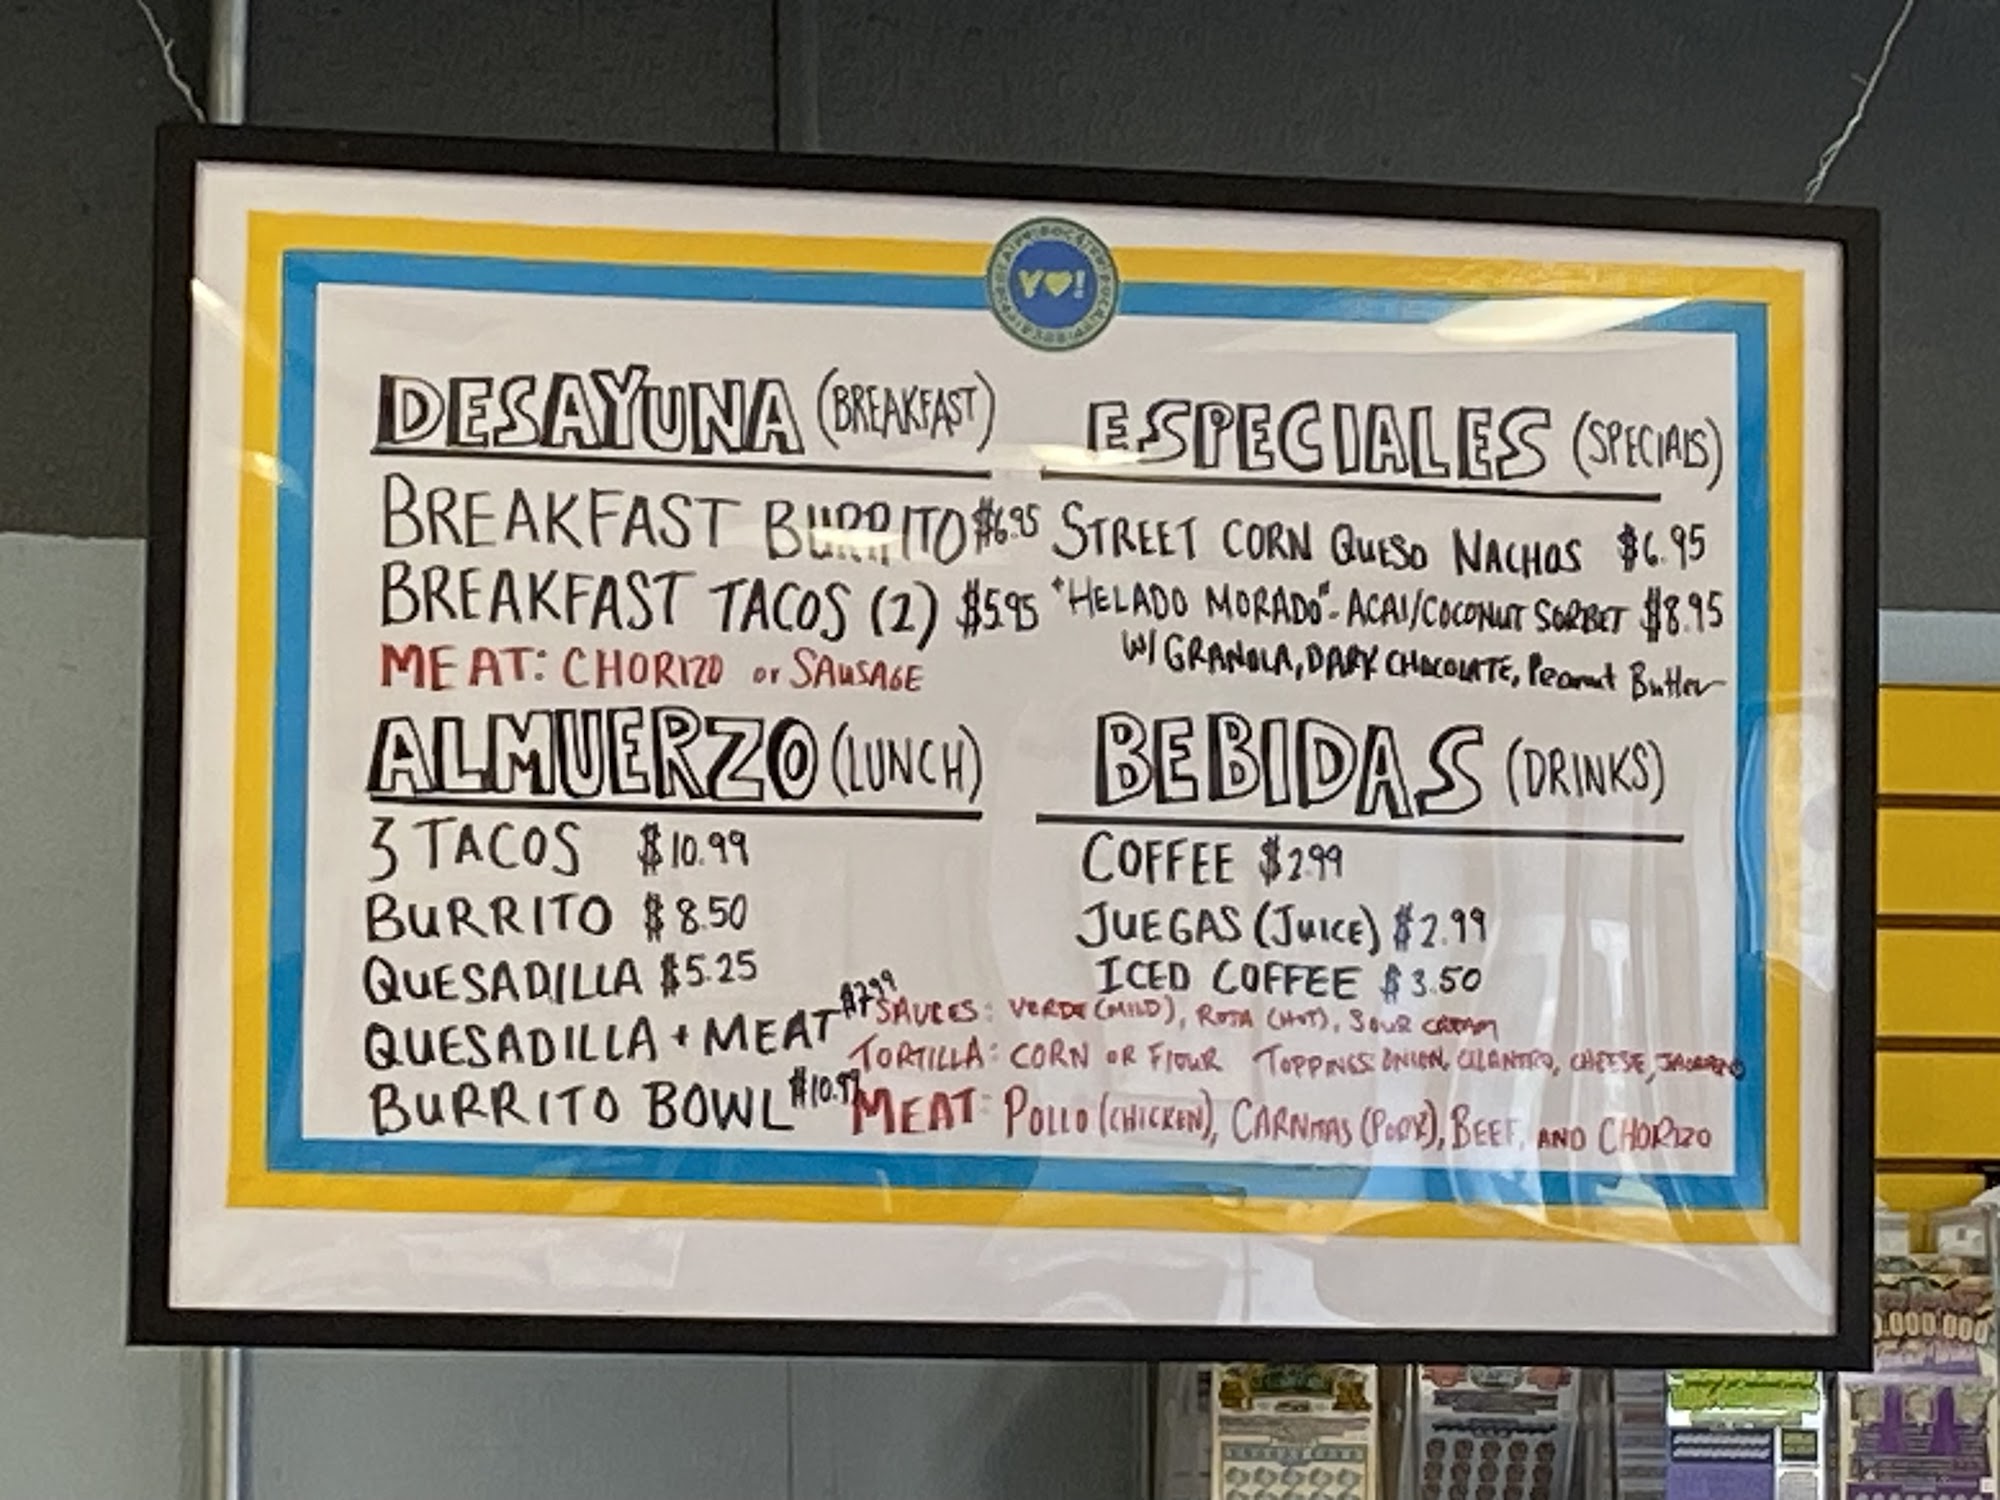 YO!
DESAYUNA (BREAKFAST)
BREAKFAST BURRITO $6.95
BREAKFAST TACOS (2) $5.95
MEAT: CHORIZO or SAUSAGE
ESPECIALES (SPECIALS)
STREET CORN QUESO NACHOS $6.95
"HELADO MORADO"- ACAI/COCONUT SORBET $8.95
W/ GRANOLA, DARK CHOCOLATE, Peanut Butter
ALMUERZO (LUNCH)
3 TACOS $10.99
BURRITO $8.50
QUESADILLA $5.25
QUESADILLA + MEAT $7.99
BURRITO BOWL $10.99
BEBIDAS (DRINKS)
COFFEE $2.99
JUEGAS (JUICE) $2.99
ICED COFFEE $3.50
SAUCES: VERDE (MILD), ROJA (HOT), SOUR CREAM
TORTILLA: CORN OR FlOUR TOPPINGS: ONION, CILANTRO, CHEESE, JALAPENO
MEAT: POLLO (CHICKEN), CARNITAS (PORK), BEEF, AND CHORIZO